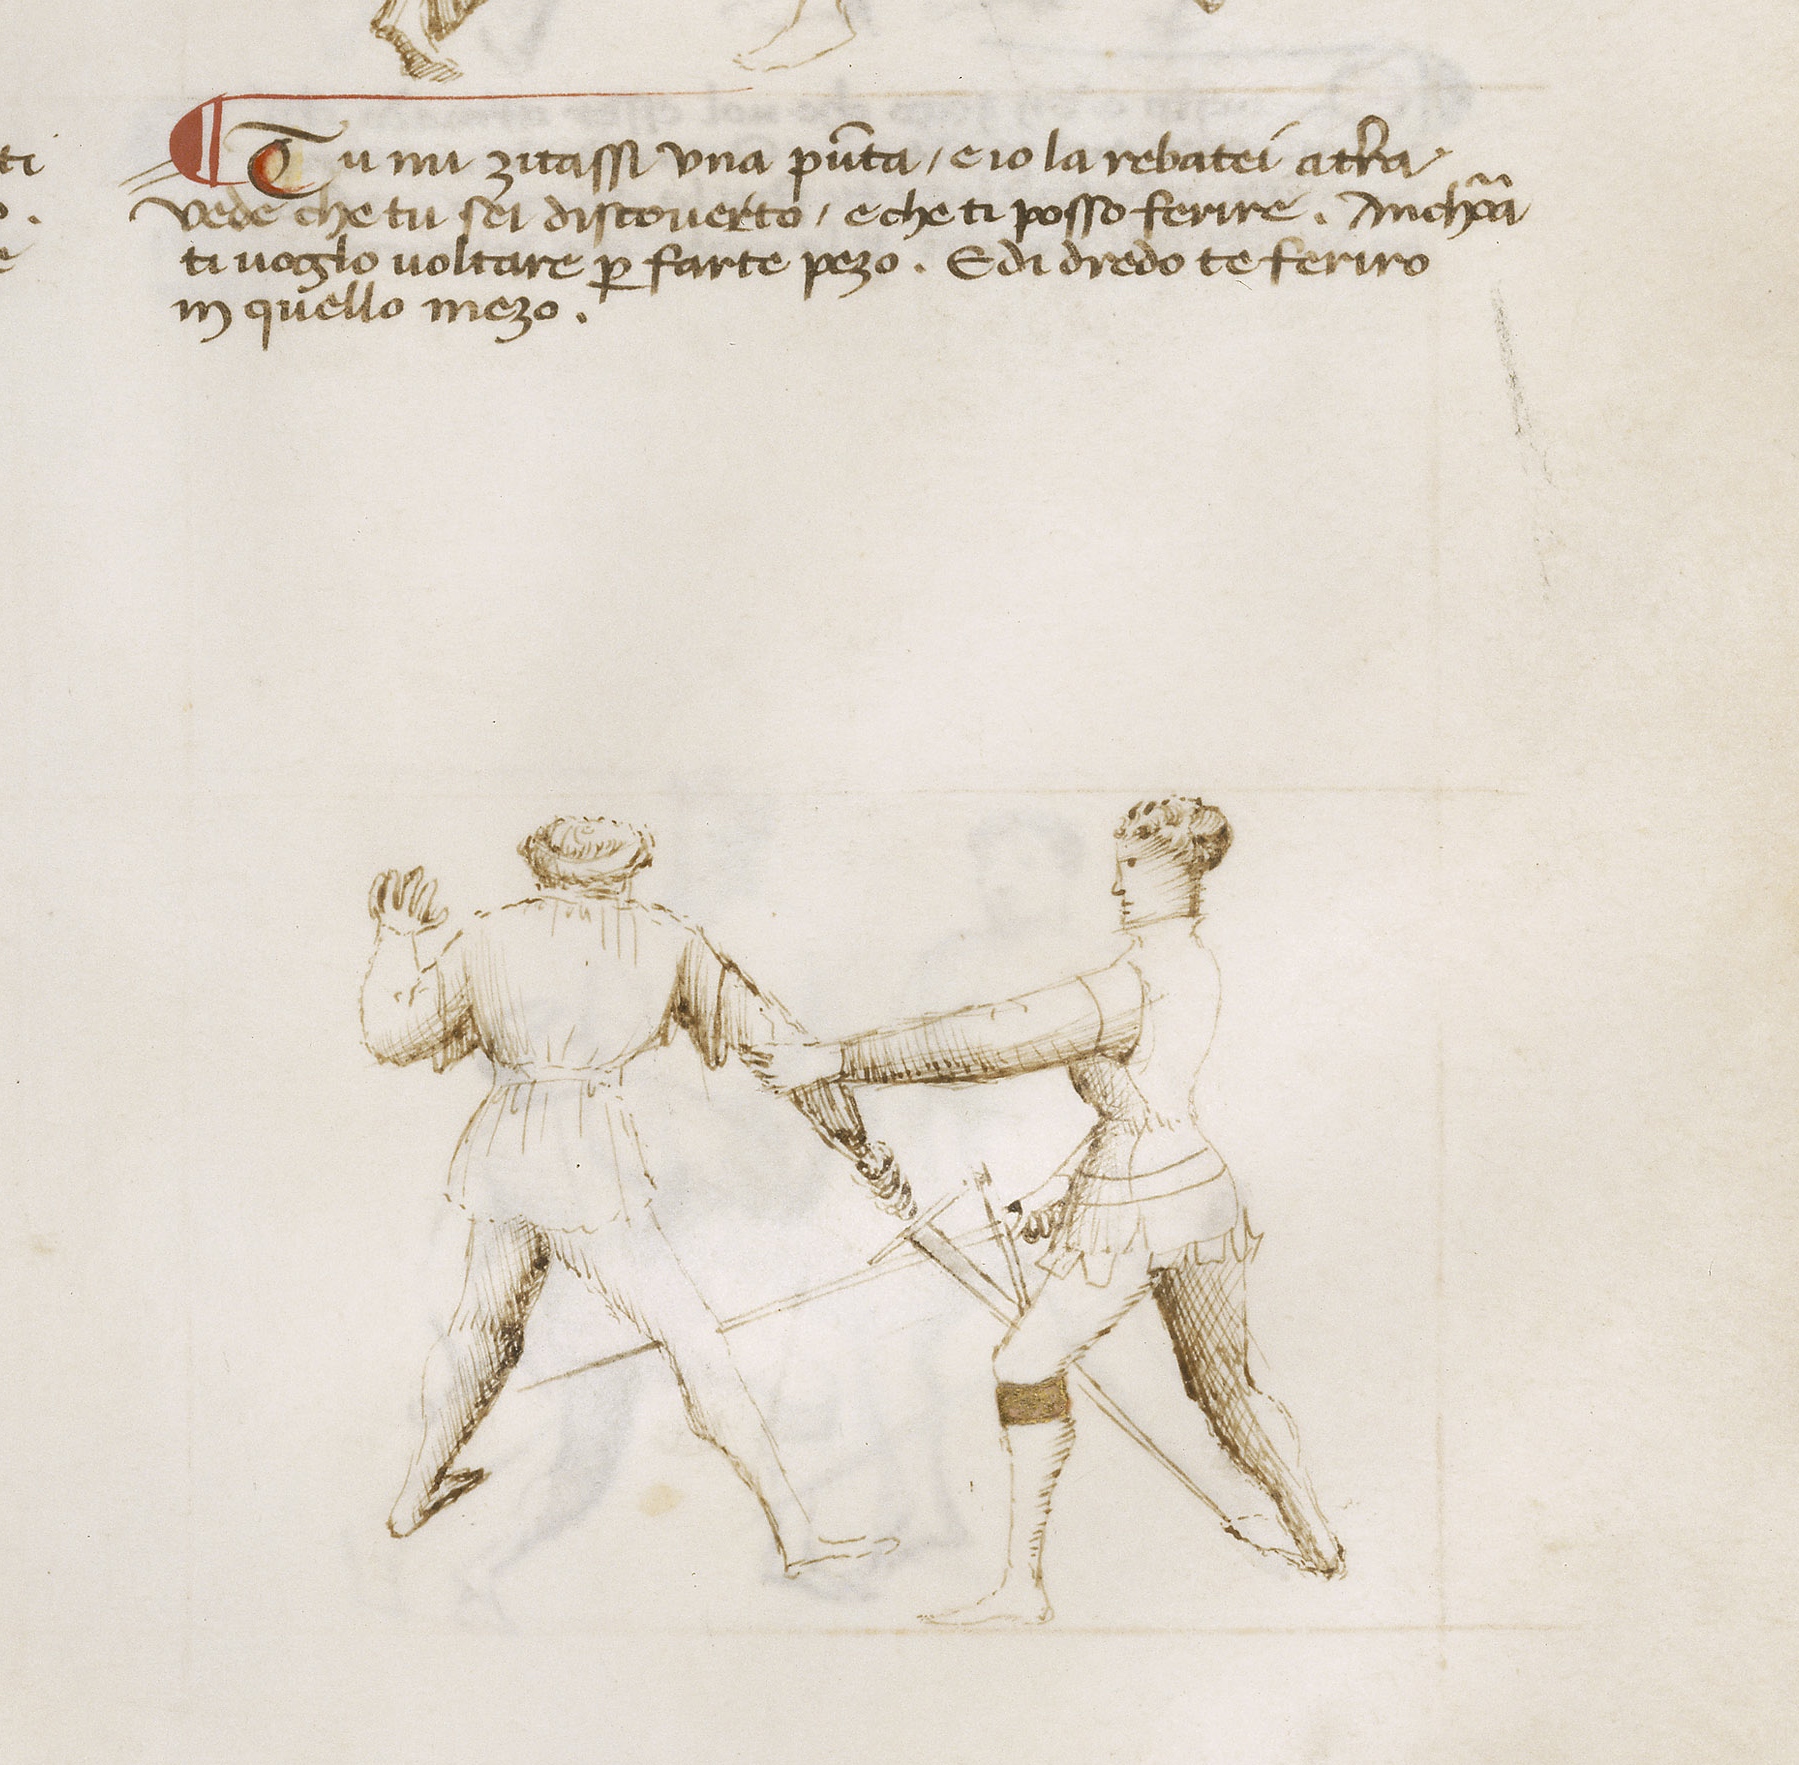 ti
Tu mi zitassi una pu̅ta / e io la rebatei a tr̅a
o.
vede che tu sei discoverto / e che ti posso ferire. Anchora
e
ti voglo voltare p̲ farte pezo. E di dredo te feriro
in quello mezo.